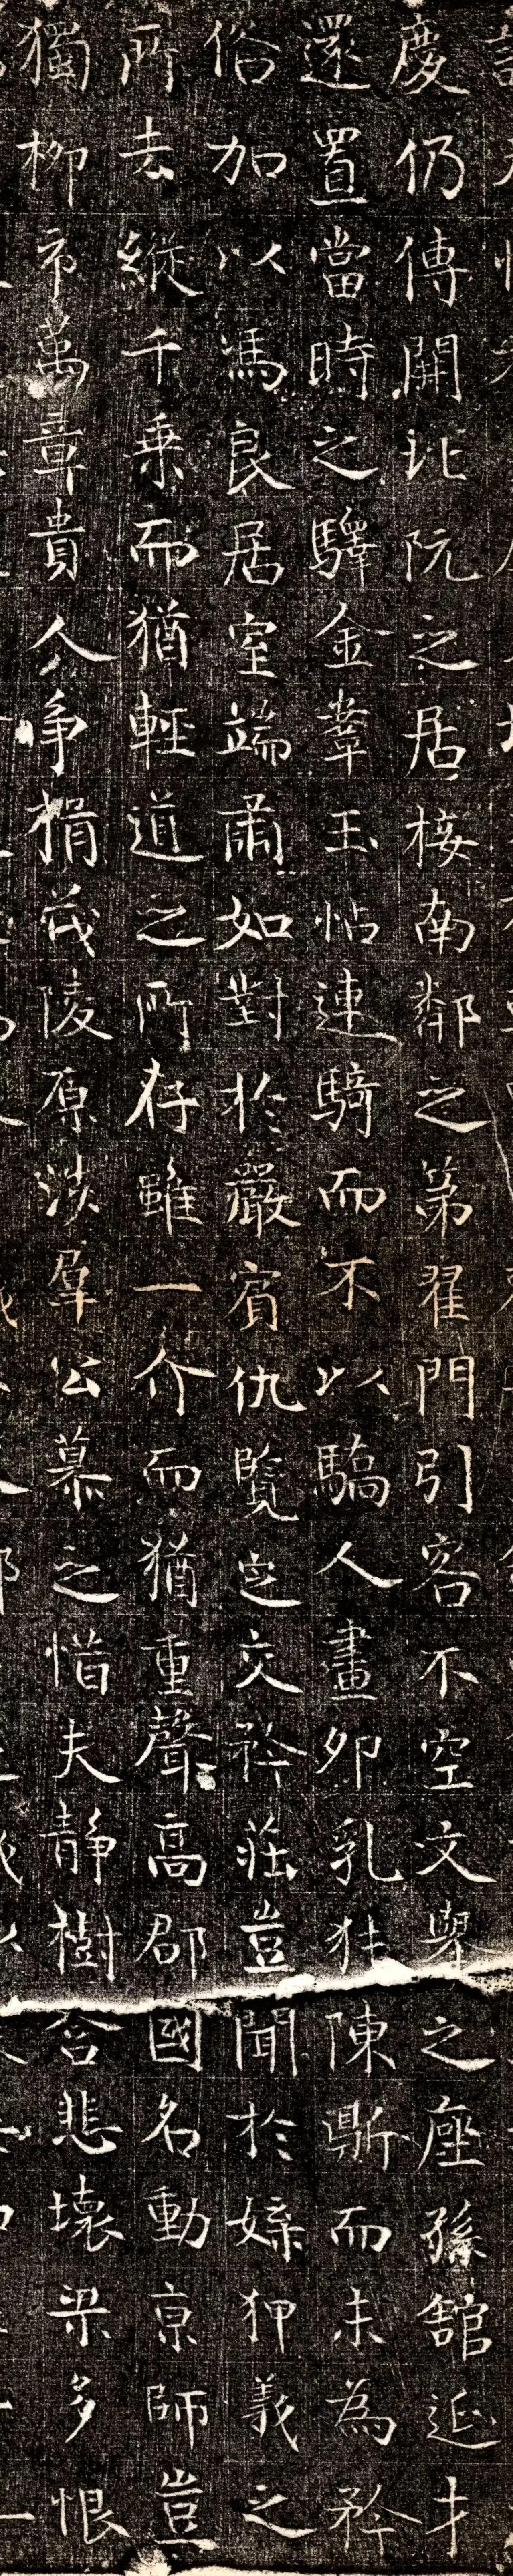 慶仍傳開北阮之居接南鄰之第翟門引客不空文舉之座孫館延才
還置當時之驛金鞌玉帖連騎而不以驕人畫卯乳牲陳鼎而未為矜
俗加以馮良居室端肅如對於嚴賓仇覽定交矜莊豈聞於媟狎義之
所去縱千乘而猶輕道之所存雖一介而猶重聲高郡國名動京師豈
獨柳市萬章貴人爭揖茂陵原涉群公慕之惜夫靜樹含悲壞梁多恨